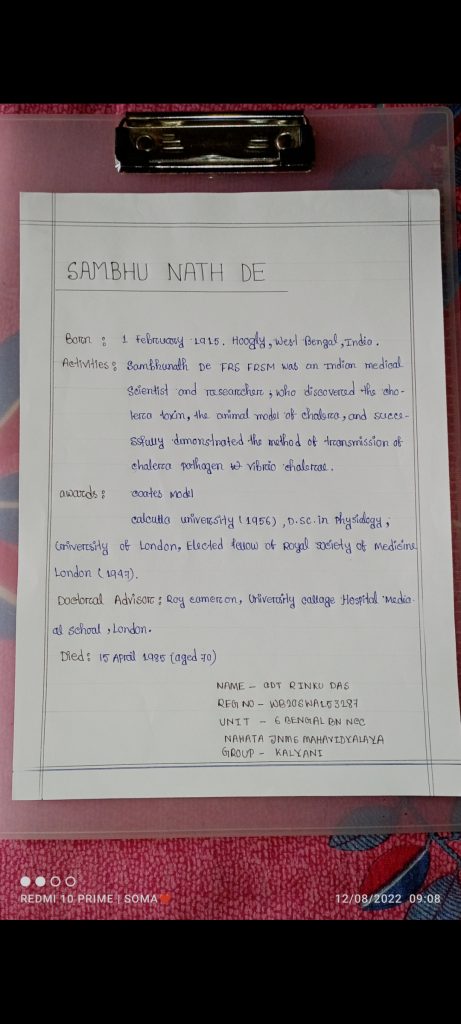 SAMBHU NATH DE
Born : 1 February 1915. Hoogly, West Bengal, India.
Activities : Sambhunath De FRS FRSM was an Indian medical
Scientist and researcher, who discovered the cho-
lera toxin, the animal model of cholera, and succe-
ssfully demonstrated the method of transmission of
cholera pathogen vibrio cholerae.
awards : coates model
calcutta university (1956), D.SC. in Physiology,
University of London, Elected fellow of Royal Society of Medicine
London (1947).
Doctoral Advisor : Roy cameron, University callage Hospital Medic-
al school, London.
Died : 15 April 1985 (aged 70)
NAME - CDT RINKU DAS
REG NO - WB20SWA153287
UNIT - 6 BENGAL BN NCC
NAHATA JNMS MAHAVIDYALAYA
GROUP - KALYANI
REDMI 10 PRIME | SOMA❤
12/08/2022 09:08